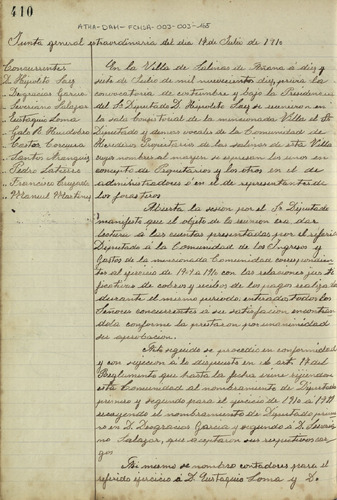 410
ATHA-DAH-FCHSA-003-003-45
Junta general extraordinaria del dia 17 de Julio de 1910
Concurrentes
D. Hipolito Saez
Deogracias Garcia
Severiano Salazar
Eustaquio Loma
Galo B. Huidobro
Castor Corcuera
Santos
Pedro
Francisco
Manuel Martinez
En la Villa de Salinas de Añana á diez y
siete de Julio de mil novecientos diez, previa la
convocatoria de costumbre y bajo la Presidencia
del Sr Diputado D. Hipolito Saez se reunieron en
la sala Consistorial de la mencionada Villa el Sr
Diputado y demas vocales de la Comunidad de
Herederos Propietarios de las salinas de esta Villa
cuyos nombres al margen se expresan los unos en
concepto de Propietarios y los otros en el de
administradores ó en el de representantes de
los forasteros
Abierta la sesion por el Sr Diputado
manifesto que el objeto de la reunion era dar
lectura á las cuentas presentadas por el referido
Diputado á la Comunidad de los Ingresos y
Gastos de la mencionada Comunidad correspondien
tes al ejercicio de 1909 á 1910 con las relaciones jus
tificativas de cobros y recibos de los pagos realizados
durante el mismo periodo, enterados todos los
Señores concurrentes a su satisfaccion encontran
dola conforme la prestaron por unanimidad
su aprobacion.
Acto seguido se procedió en conformidad
y con sujecion á lo dispuesto en el art 14 del
Reglamento que hasta la fecha viene rigiendo
esta Comunidad al nombramiento de Diputado
primero y segundo para el ejercicio de 1910 á 1911
recayendo el nombramiento de Diputado prime
ro en D. Deogracias Garcia y segundo á D. Severia
no Salazar, que aceptaron sus respectivos car
gos
Asi mismo se nombro contadores para el
referido ejercicio a D. Eustaquio Loma y D.